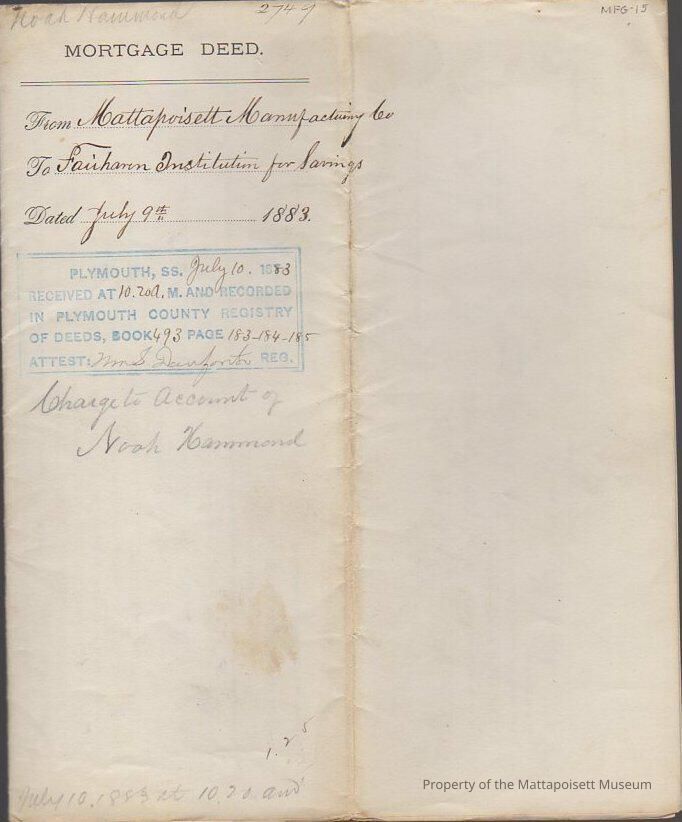 Noah Hammond
2749
MFG-15
MORTGAGE DEED.
From Mattapoisett Manufactuing Co
To Fairhaven Institution for Savings
Dated July 9th 1883.
PLYMOUTH, SS. July 10. 1883
RECEIVED AT 10.20 A. M. AND RECORDED
IN PLYMOUTH COUNTY REGISTRY
OF DEEDS, BOOK 493 PAGE 183-184-185
ATTEST: Wm S Danforth REG.
Charge to Account of
Noah Hammond
1.25
July 10, 1883 at 10.20 and
Property of the Mattapoisett Museum